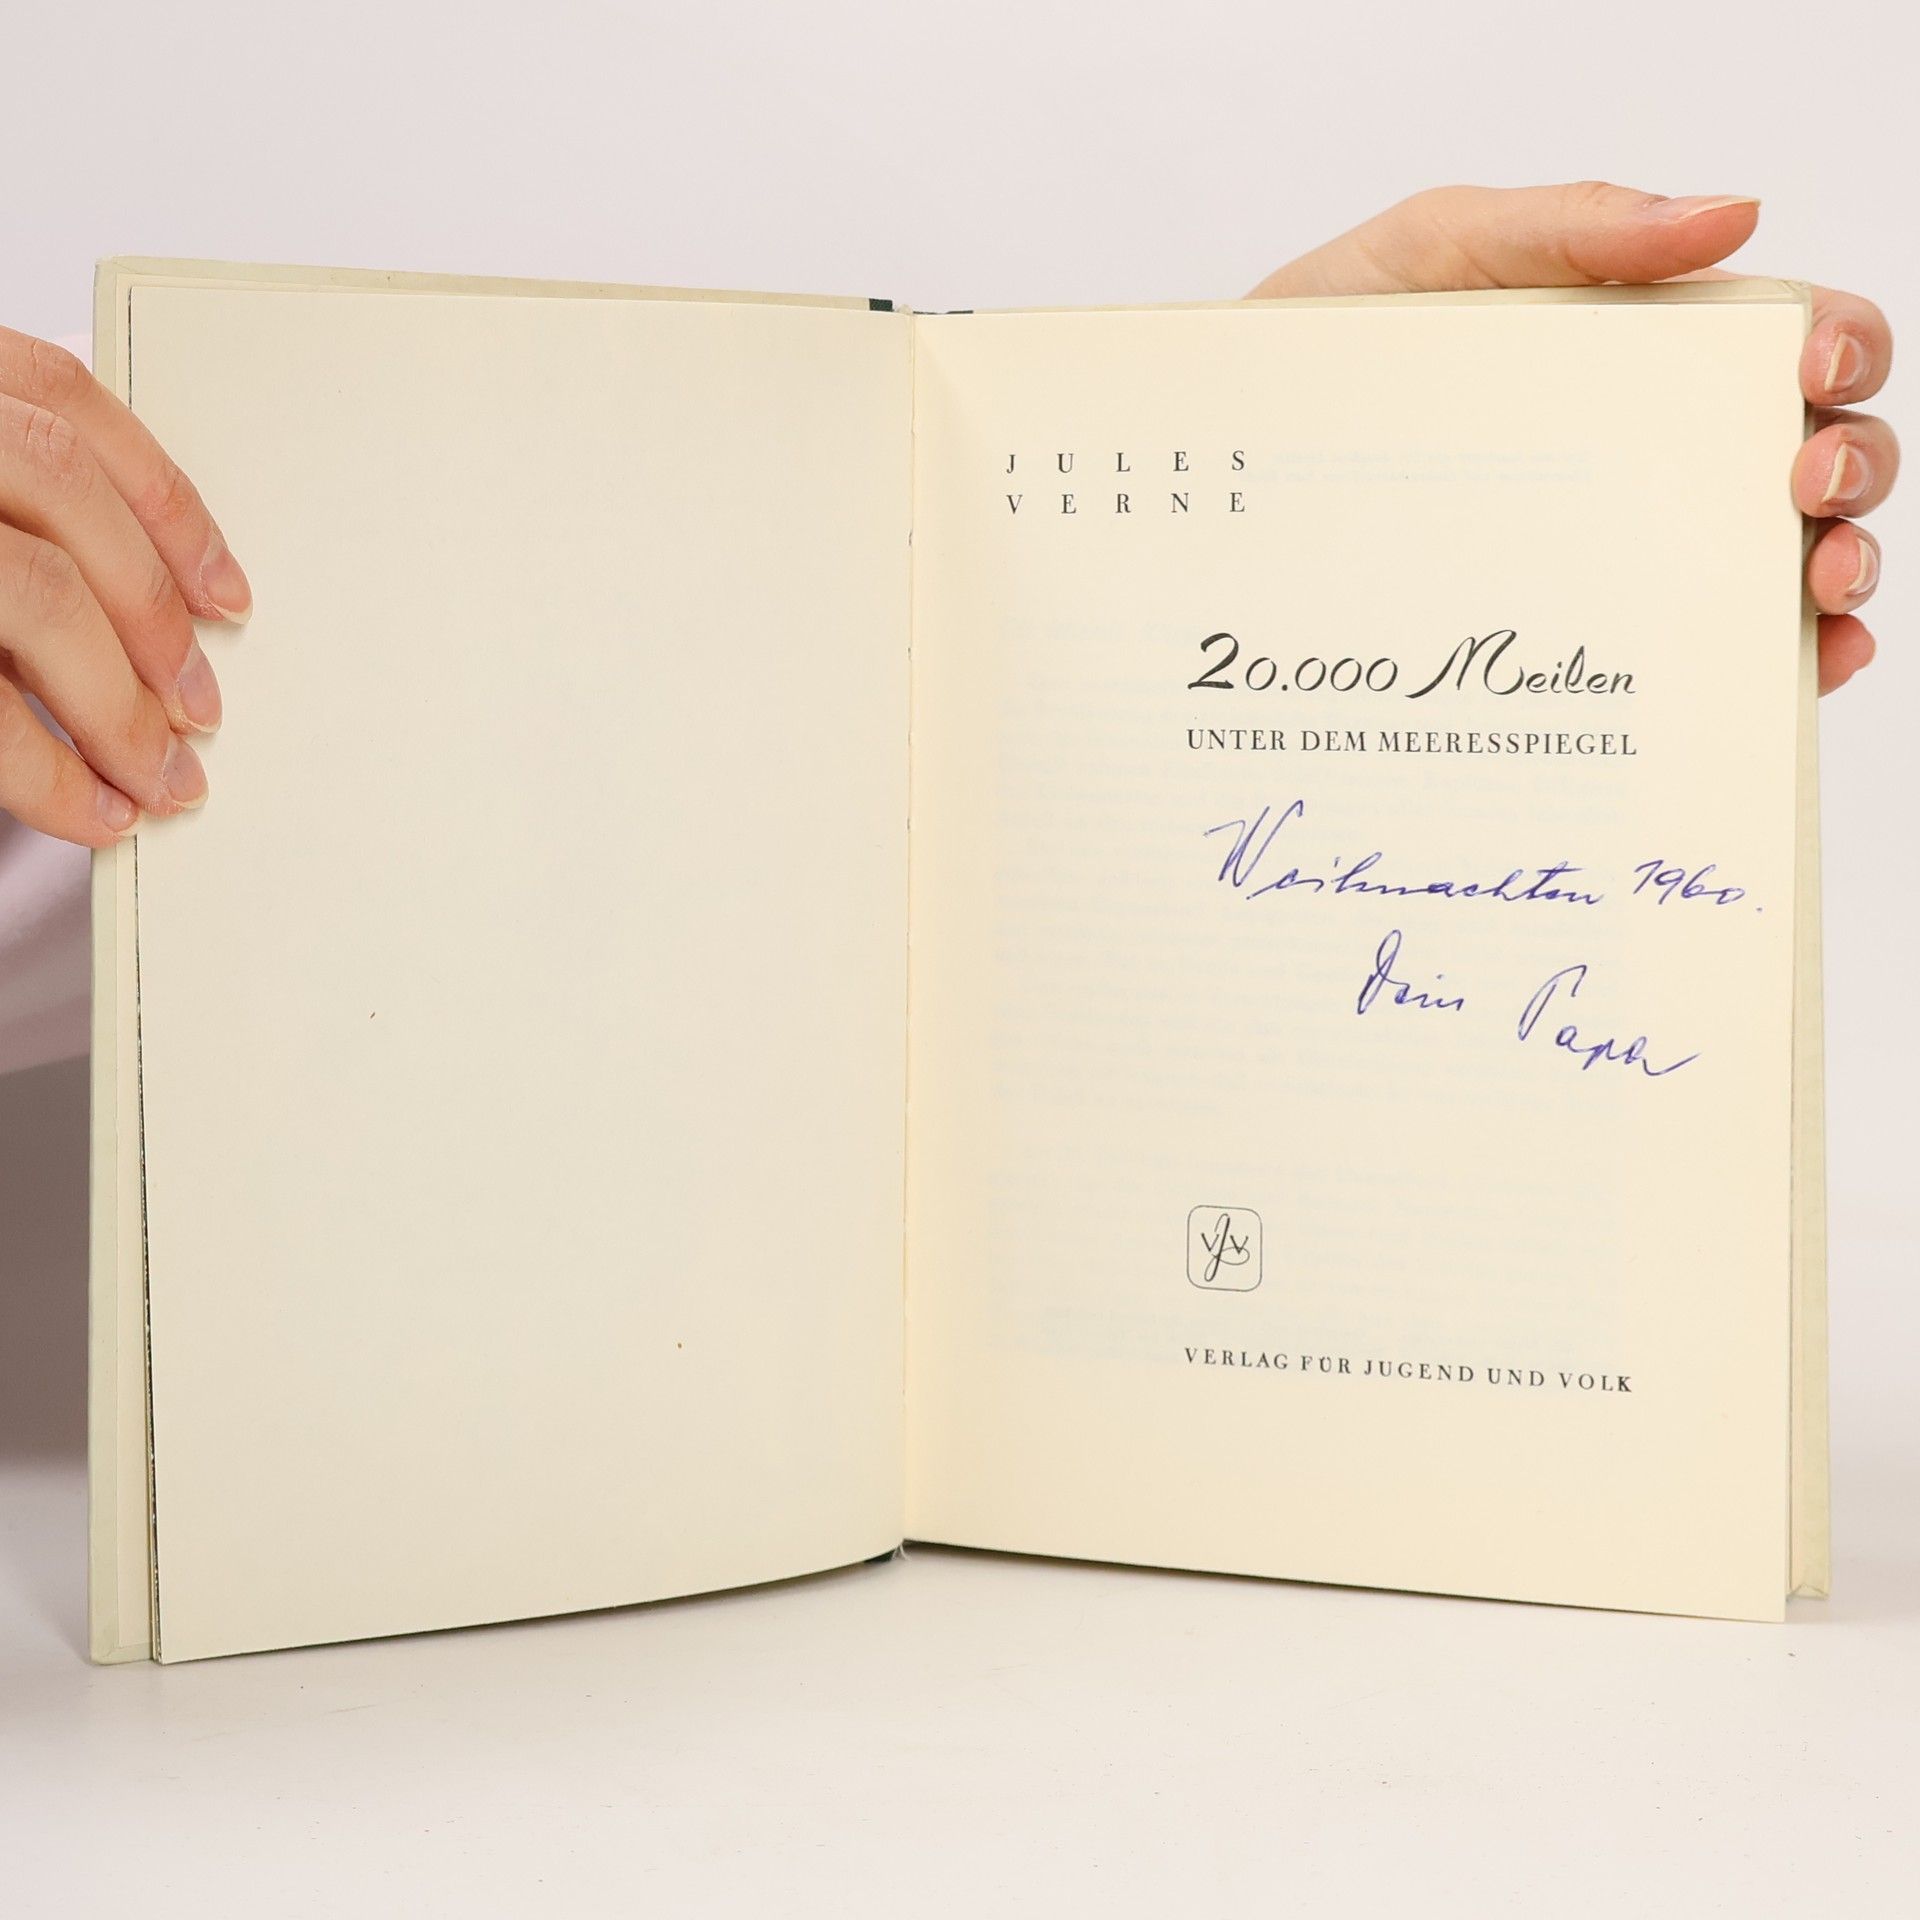 JULES
VERNE
20.000 Meilen
UNTER DEM MEERESSPIEGEL
Weihnachten 1960.
Dein Papa
VJV
VERLAG FÜR JUGEND UND VOLK